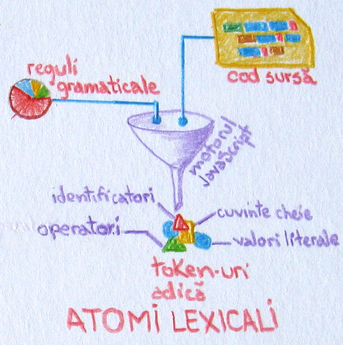 reguli
gramaticale
cod sursă
motorul
JavaScript
identificatori
cuvinte cheie
operatori
valori literale
token-uri
adică
ATOMI LEXICALI